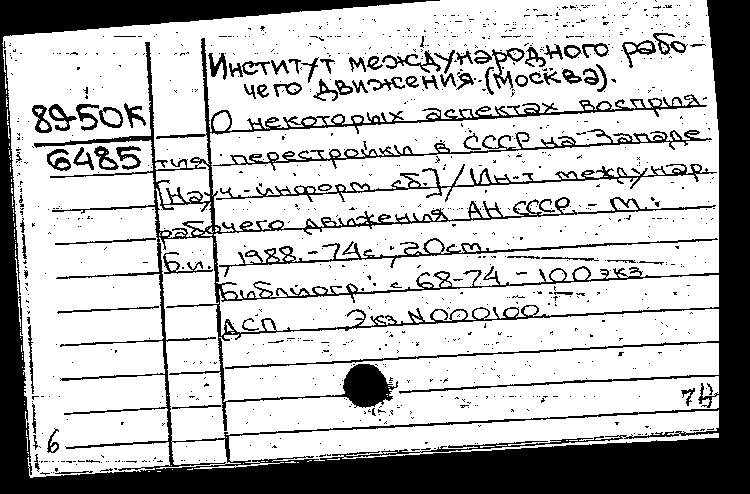 Институт международного рабо-
чего движения (Москва).
89-50К
6485
О некоторых аспектах восприя-
тия перестройки в СССР на Западе
[Науч.-информ. сб.] / Ин-т междунар.
рабочего движения АН СССР. - М.:
Б.и., 1988. - 74с.; 20см.
Библиогр.: с. 68-74. - 100 экз.
ДСП. Экз. N000100.
6